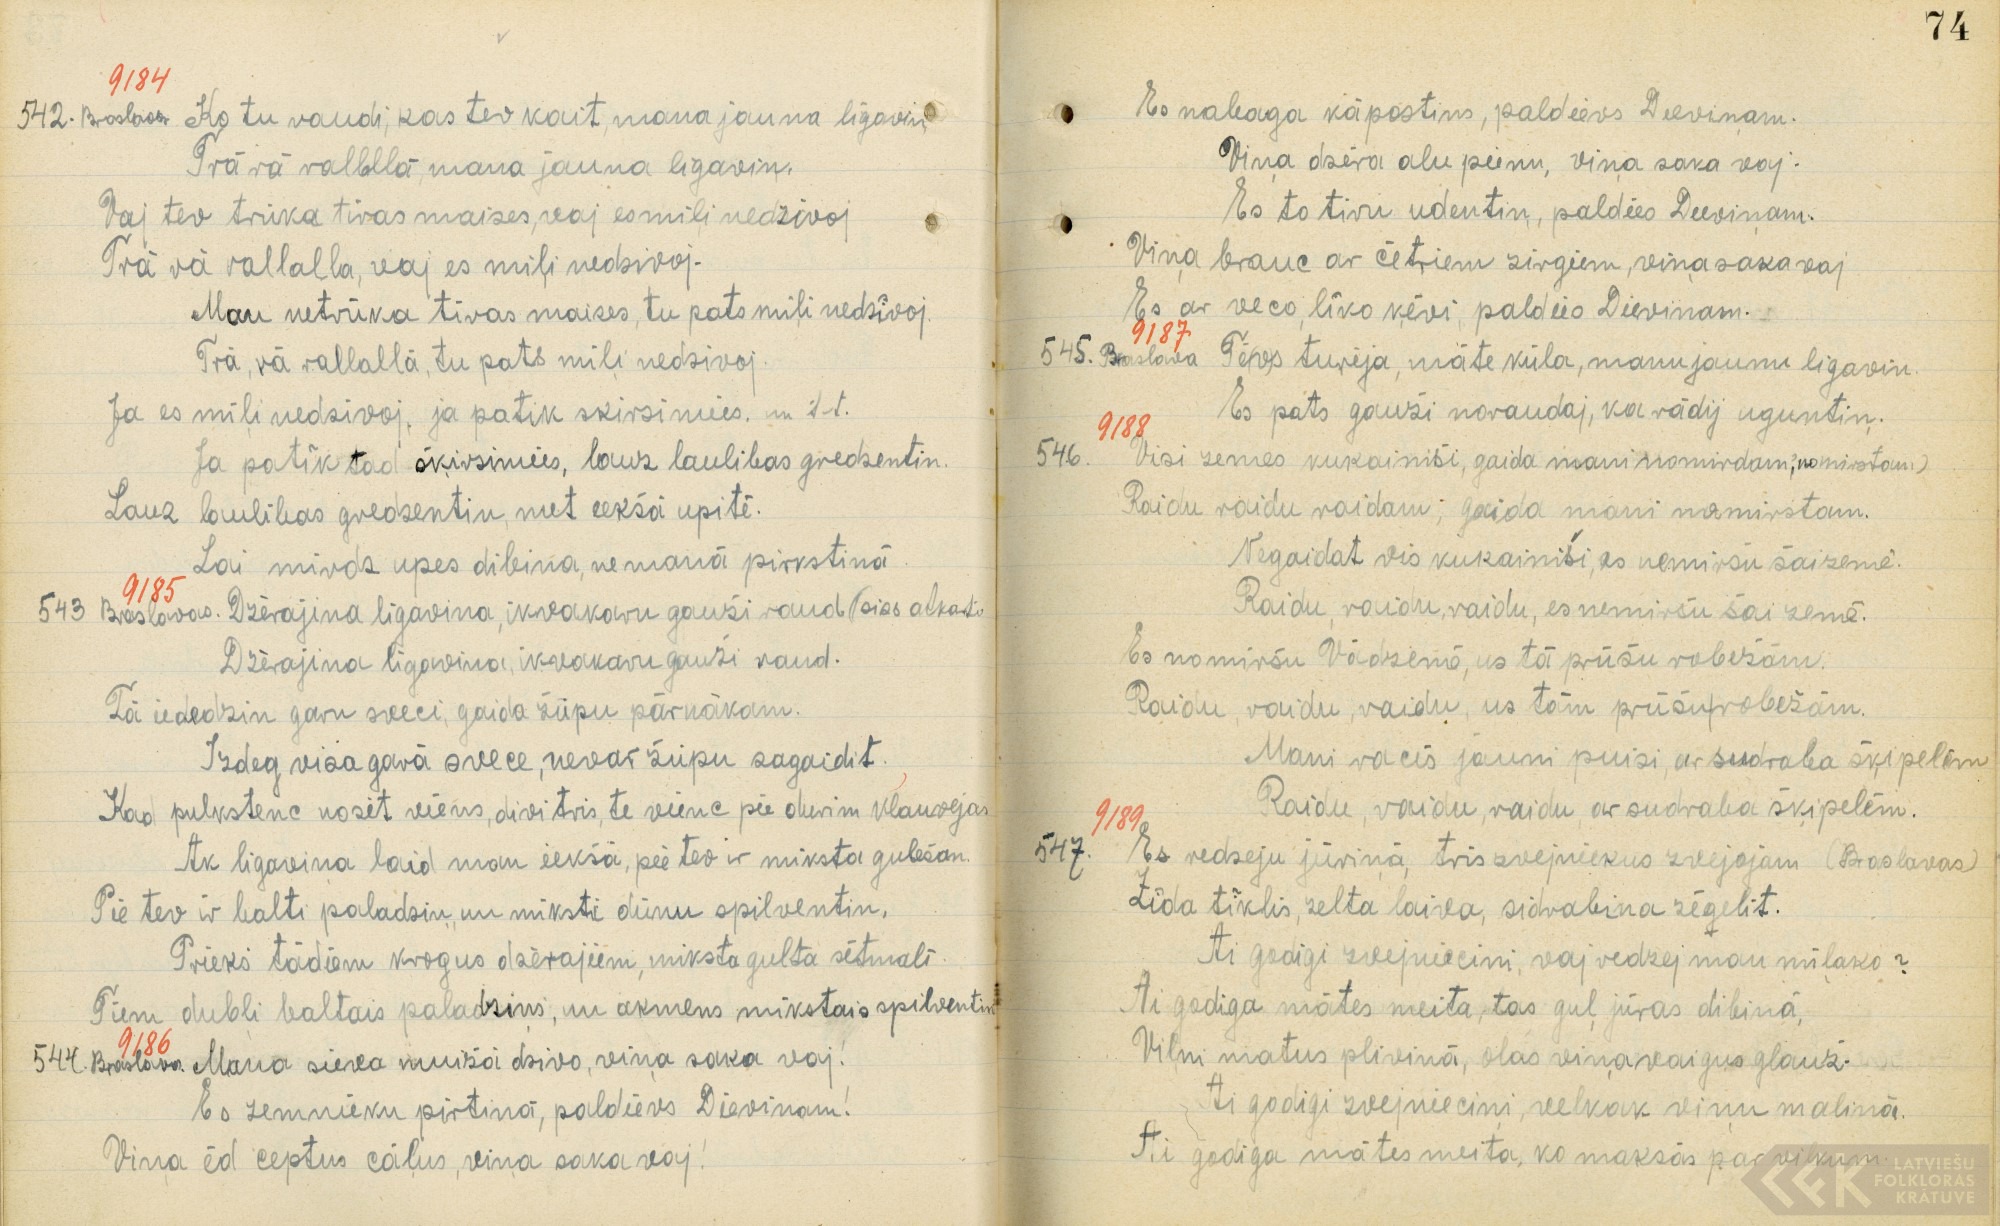 9184
542. Braslavas Ko tu raudi, kas tev kait, mana jauna līgaviņ
Trā rā rallllā, mana jauna ligaviņ.
Vaj tev trūka tīras maises, vaj es mīļi nedzīvoj
Trā rā rallalla, vaj es mīļi nedsivoj.
Man netrūka tīras maises, tu pats mīļi nedsīvoj.
Trā, rā rallallā, tu pats mīļi nedsivoj.
Ja es mīļi nedsivoj, ja patīk skirsimies. un t.t.
Ja patīk tad šķirsimies, lauz laulibas gredsentin.
Lauz laulibas gredsentin, met eekšā upītē.
Lai mirdz upes dibina, ne manā pirkstinā
9185
543 Braslavas. Dzērajina līgavina, ikvakaru gauži raud (viss atkarto
Dzērajina līgavina, ikvakaru gauži raud.
Tā iededzin garu sveci, gaida žūpu pārnākam.
Izdeg visa garā svece, nevar žūpu sagaidit.
Kad pulkstenc nosit viens, divi tris, te vienc pie durim klauvejas
Ak ligavina laid man iekšā, pie tev ir miksta gulešan.
Pie tev ir balti paladziņ, un miksti dūnu spilventin.
Prieks tādiem krogus dsērajiem, miksta gulta sētmalī.
Tiem dubļi baltais paladziņš, un akmens mikstais spilventiņ
9186
544. Braslava. Mana sieva muižā dsivo, viņa saka vaj!
Es zemnieku pirtinā, paldievs Dievinam!
Viņa ēd ceptus cāļus, viņa saka vaj!
74
Es nabaga kāpostins, paldievs Deeviņam.
Viņa dsēra alu peenu, viņa saka vaj.
Es to tiru udentiņ, paldies Deeviņam.
Viņa brauc ar četriem zirgiem, viņa saka vaj
Es ar veco, līko ķēvi, paldies Dievinam.
9187
545. Braslava Tēvs turēja, māte kūla, manu jaunu līgaviņ.
Es pats gauži noraudaj, ka rādij uguntiņ.
9188
546. Visi zemes kukainiši, gaida mani nomirdam, nomirstam)
Raidu raidu raidam, gaida mani nomirstam.
Negaidat vis kukainiši, es nemiršu šai zemē.
Raidu, raidu, raidu, es nemiršu šai zemē.
Es nomiršu Vādzemē, us tā prūšu robežām.
Raidu, raidu, raidu, us tām prūšu robežām.
Mani racīs jauni puiši, ar sudraba šķipelēm
Raidu, raidu, raidu ar sudraba šķipelēm.
9189
547. Es redseju jūriņā, trīs zvejniekus zvejojam (Braslavas)
Zīda tīklis, zelta laiva, sidrabina zēgelīt.
Ai godigi zvejniecini, vaj redzej man mīļako?
Ai godiga mātes meita, tas guļ jūras dibinā,
Vilni matus plivinā, olas viņa vaigus glauž.
Ai godigi zvejnieciņi, velkak viņu malinā.
Ai godiga mātes meita, ko maksās par vilkum.
LATVIEŠU
FOLKLORAS
KRĀTUVE